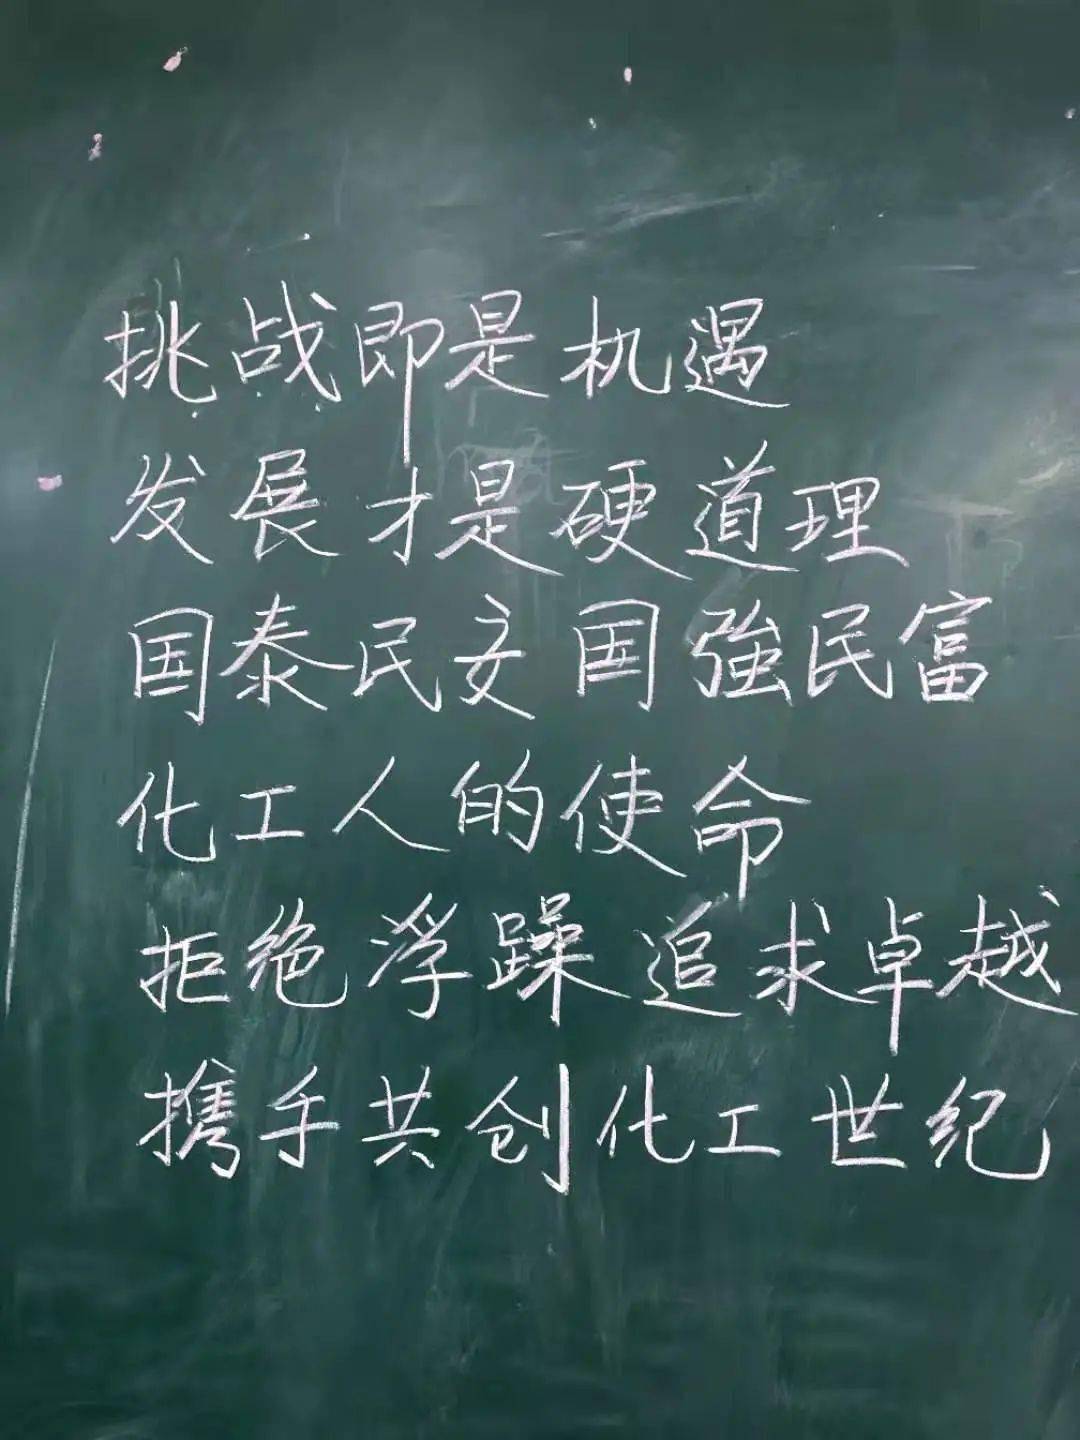 挑战即是机遇
发展才是硬道理
国泰民安国強民富
化工人的使命
拒绝浮躁追求卓越
携手共创化工世纪